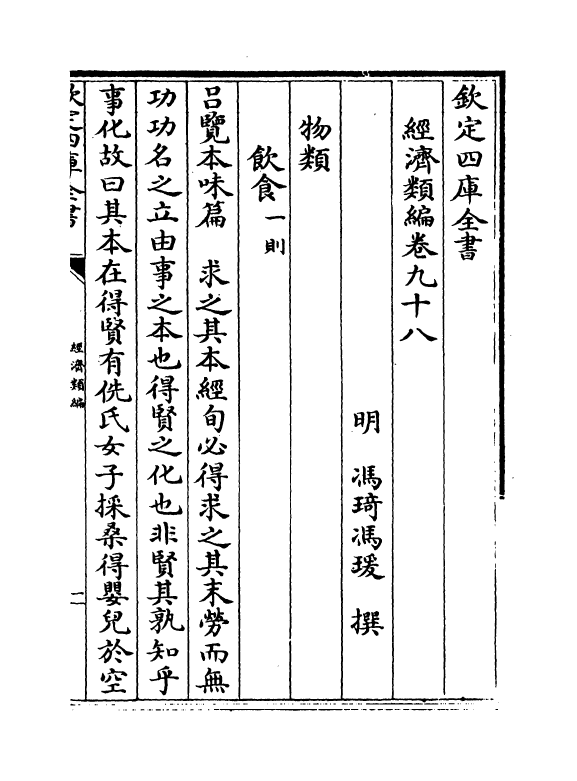 欽定四庫全書
經濟類編卷九十八
明 馮琦馮瑗 撰
物類
飲食一則
呂覽本味篇 求之其本經旬必得求之其末勞而無
功功名之立由事之本也得賢之化也非賢其孰知乎
事化故曰其本在得賢有侁氏女子採桑得嬰兒於空
欽定四庫全書
經濟類編
二